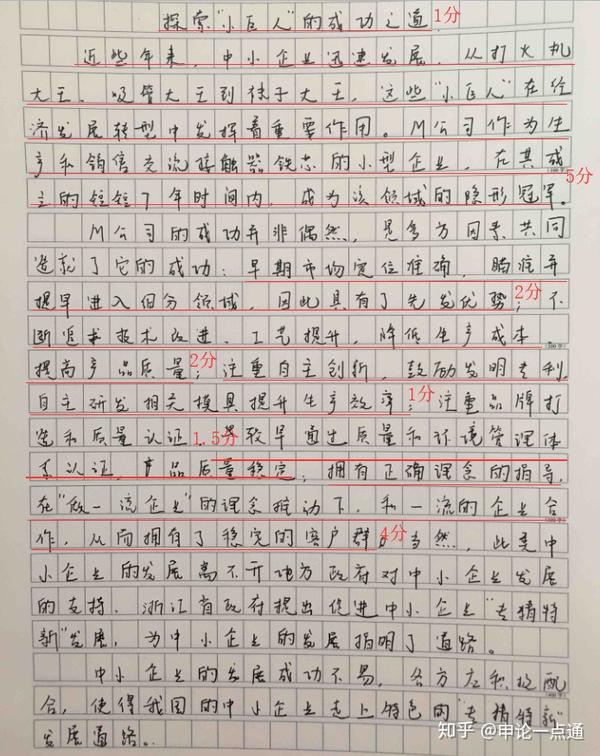 探索"小巨人"的成功之道 1分
近些年来，中小企业迅速发展，从打火机
大王、吸管大王到袜子大王，这些"小巨人"在经
济发展转型中发挥着重要作用。M公司作为生
产和销售交流接触器铁芯的小型企业，在其成
5分
立的短短7年时间内，成为该领域的隐形冠军。
M公司的成功并非偶然，是多方因素共同
造就了它的成功：早期市场定位准确，瞄准并
提早进入细分领域，因此具有了先发优势；2分不
断追求技术改进、工艺提升，降低生产成本
提高产品质量；2分注重自主创新，鼓励发明专利，
自主研发相关模具提升生产效率；1分注重品牌打
造和质量认证，1.5分较早通过质量和环境管理体
系认证，产品质量稳定；拥有正确理念的指导，
在"做一流企业"的理念推动下，和一流的企业合
作，从而拥有了稳定的客户群。4分当然，此类中
小企业的发展离不开地方政府对中小企业发展
的支持，浙江省政府提出促进中小企业"专精特
新"发展，为中小企业的发展指明了道路。
中小企业的发展成功不易，各方应积极配
合，使得我国的中小企业走上特色的"专精特新"
发展道路。
知乎 @申论一点通